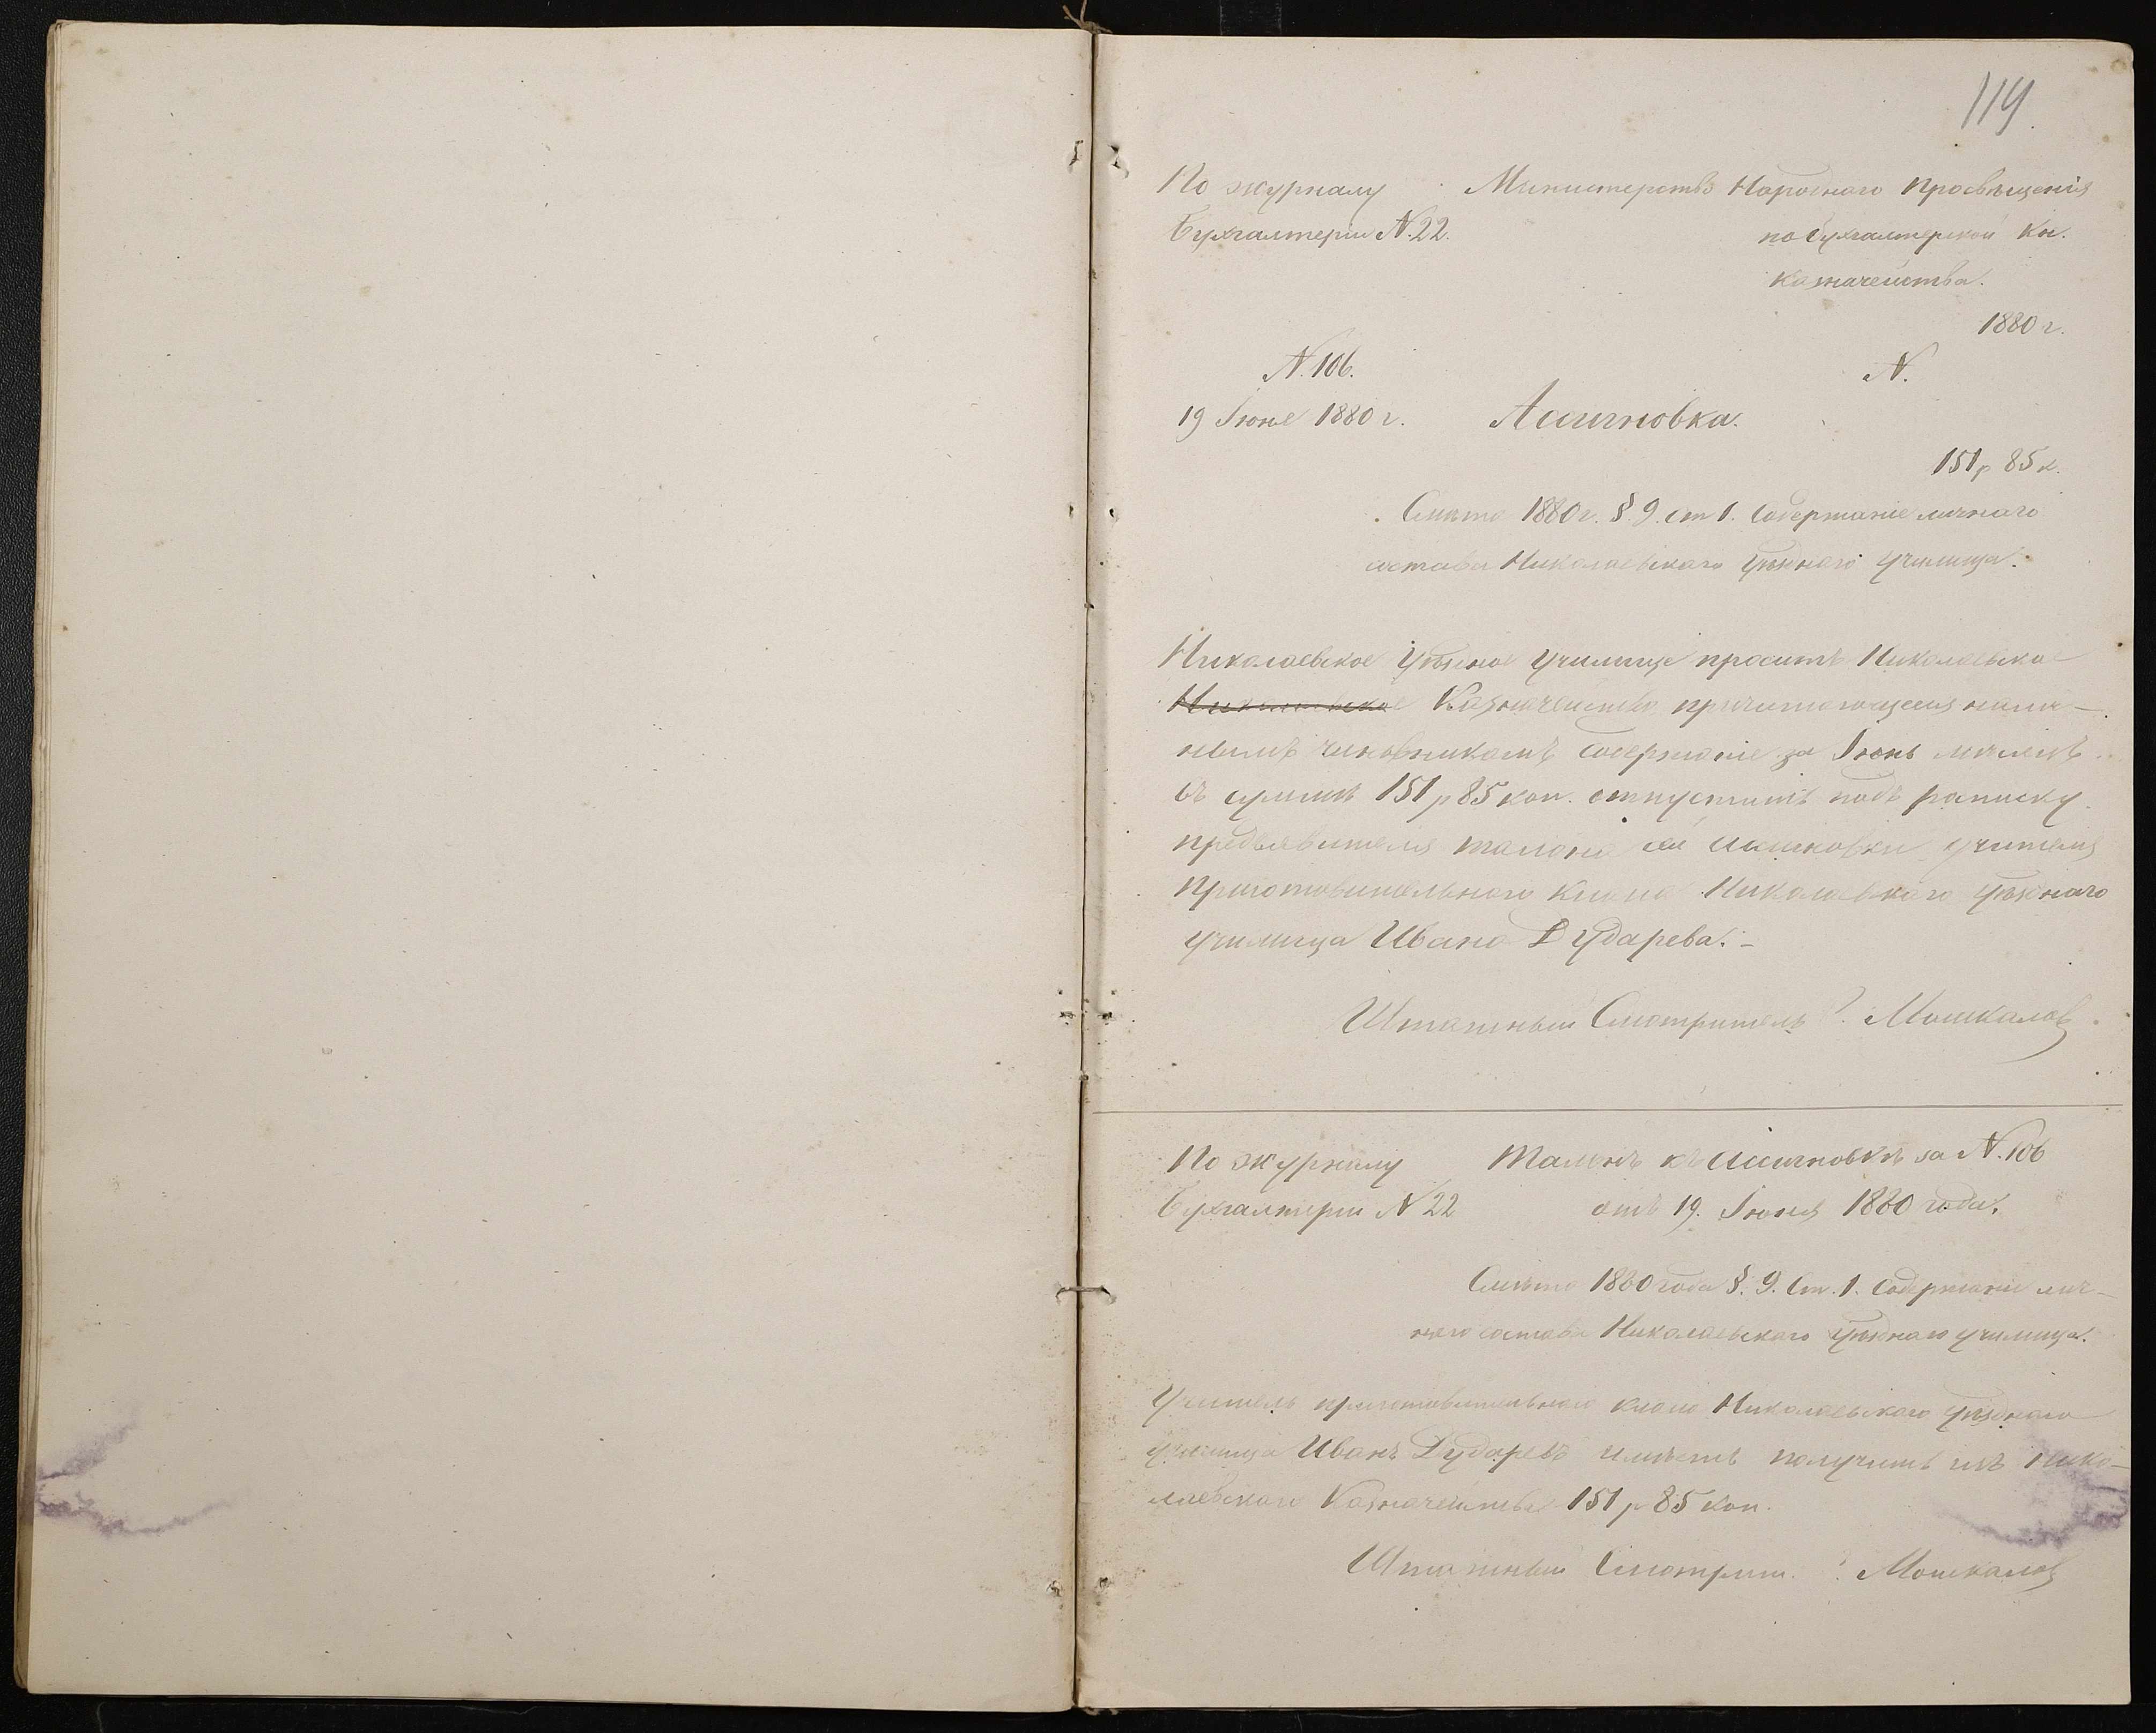 119.
По журналу Министерство Народнаго Просвѣщенія
Бухгалтеріи N.22. по бухгалтерской кн.
Казначейства.
1880 г.
N.106. N.
19 Іюня 1880 г. Ассигновка.
151 р 85 к.
Смѣта 1880 г. §. 9. ст 1. Содержаніе личнаго
состава Николаевскаго Уѣзднаго Училища.
Николаевское Уѣздное Училище проситъ Николаевское
Николаевское Казначейство, причитающееся
чиновникамъ содержаніе за Іюнь мѣсяцъ
въ суммѣ 151 р 85 коп. отпустить подъ росписку
предъявителя талона сей ассигновки учителя
приготовительнаго класса Николаевскаго Уѣзднаго
училища Ивана Дударева. –
Штатный Смотритель Мошкалов
По журналу Талонъ къ Ассигновкѣ за N.106
Бухгалтеріи N 22 отъ 19. Іюня 1880 года.
Смѣта 1880 года §. 9. Ст. 1. Содержаніе лич-
наго состава Николаевскаго Уѣзднаго училища.
Учитель приготовительнаго класса Николаевскаго Уѣзднаго
училища Иванъ Дударевъ имѣетъ получить изъ Нико-
лаевскаго Казначейства 151 р 85 коп.
Штатный Смотрит. Мошкалов